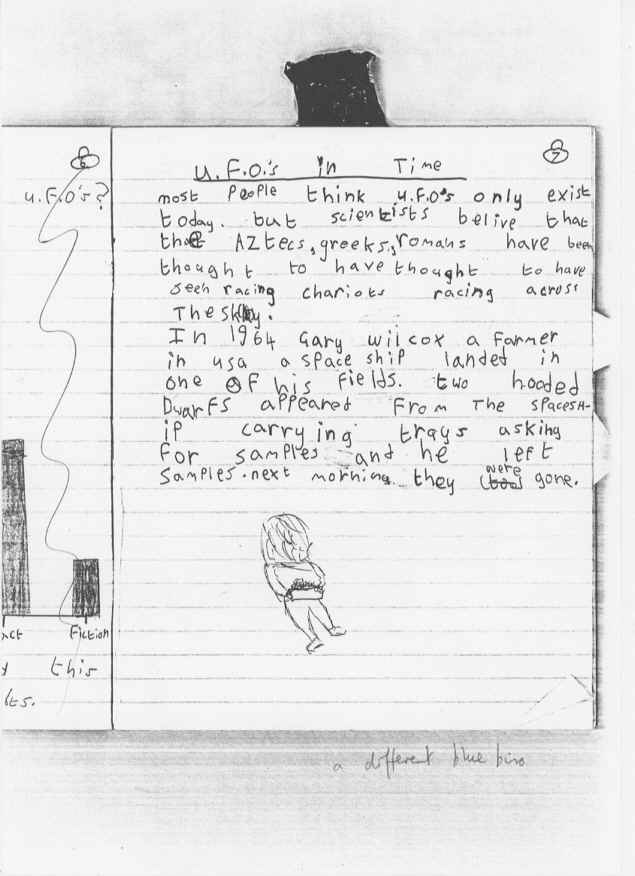 6
u.F.O's?
act
Fiction
this
lts.
7
U.F.O.'s in Time
most People think u.F.O's only exist
today. but scientists belive that
the AZtecs, greeks, romans have been
thought to have thought to have
seen racing chariots racing across
The sky.
In 1964 Gary wilcox a Farmer
in usa a space ship landed in
one OF his Fields. two hooded
DwarFs appeared From The spacesh-
ip carrying trays asking
For samples and he left
samples. next morning they were gone.
a different blue biro